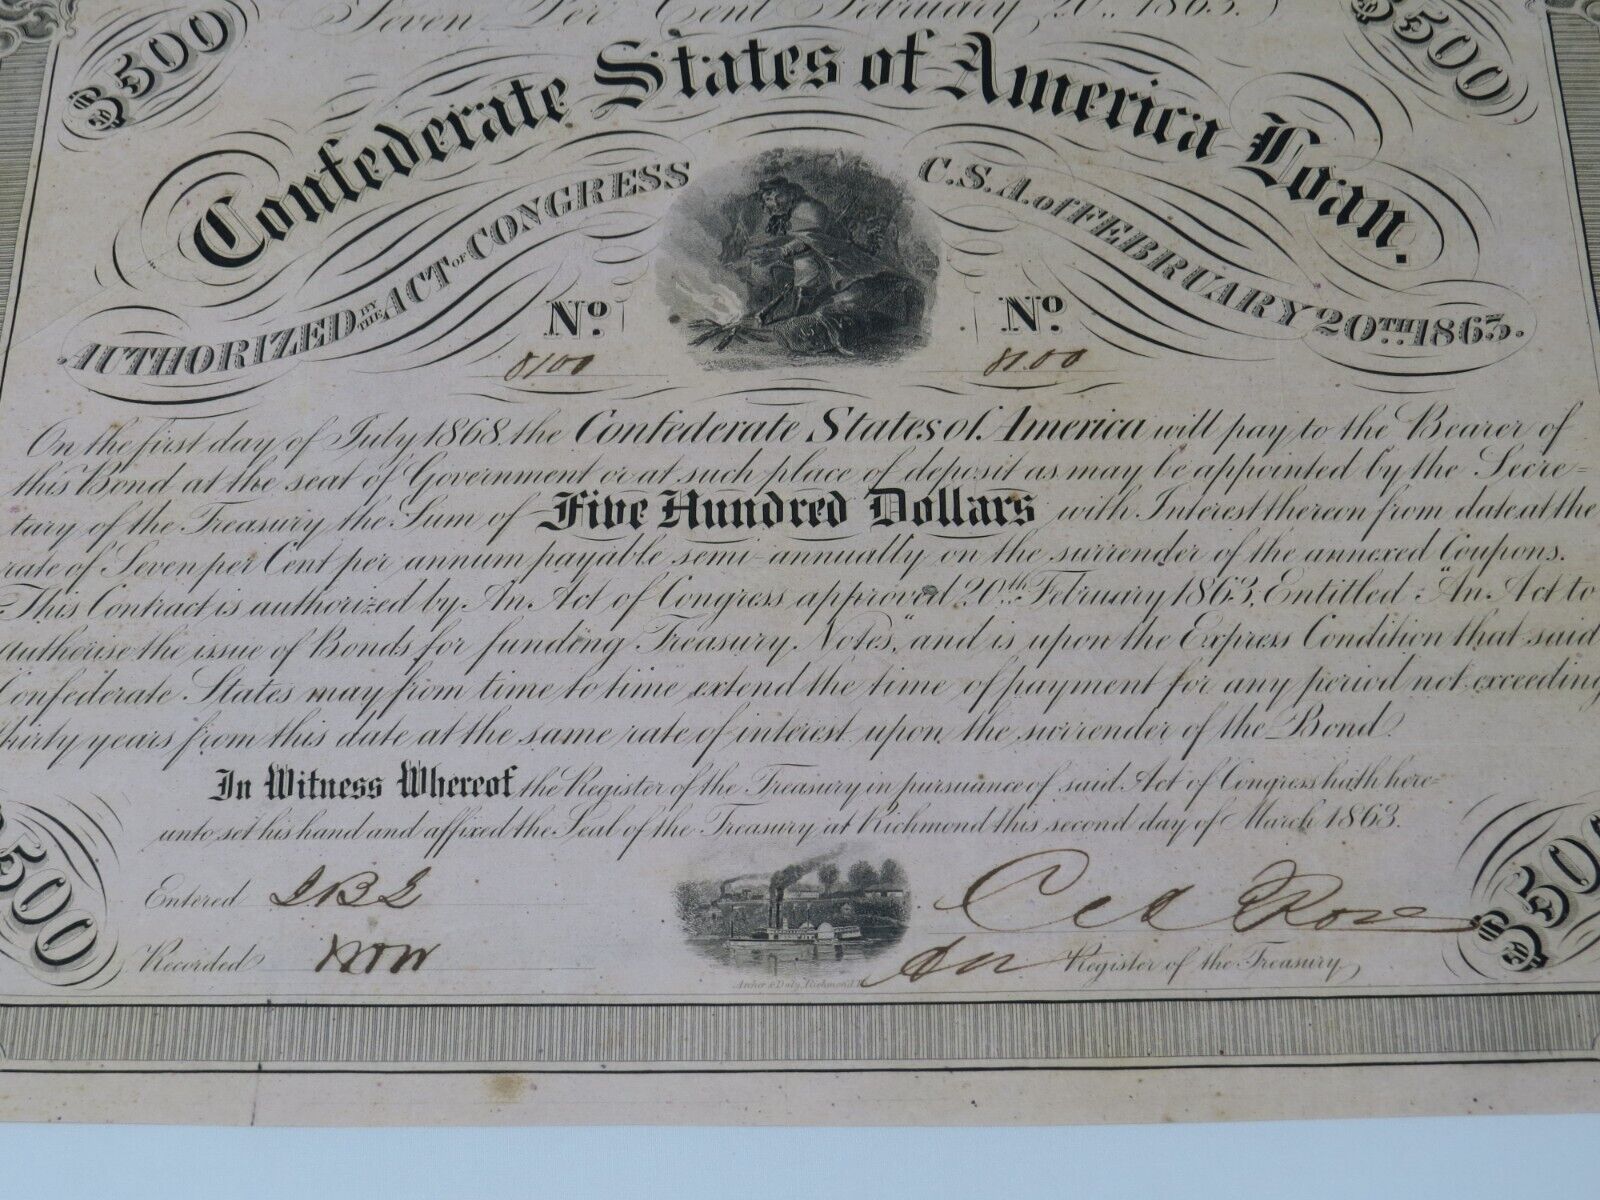 Seven Per Cent February 20.. 1863.
$500
$500
Confederate States of America Loan.
AUTHORIZED BY THE ACT OF CONGRESS C.S.A. of FEBRUARY 20TH.. 1863.
No. No.
8100 8100
On the first day of July 1868, the Confederate States of America will pay to the Bearer of
this Bond at the seat of Government or at such place of deposit as may be appointed by the Secre=
tary of the Treasury the Sum of Five Hundred Dollars with Interest thereon from date, at the
rate of Seven per Cent per annum payable semi-annually on the surrender of the annexed Coupons.
This Contract is authorized by An Act of Congress approved 20th.. February 1863, Entitled: "An Act to
authorise the issue of Bonds for funding Treasury Notes," and is upon the Express Condition that said
Confederate States may from time to time extend the time of payment for any period not exceeding
thirty years from this date at the same rate of interest upon the surrender of the Bond.
In Witness Whereof the Register of the Treasury in pursuance of said Act of Congress hath here=
unto set his hand and affixed the Seal of the Treasury at Richmond this second day of March 1863.
$500
$500
Entered
Recorded
Register of the Treasury,
Archer & Daly, Richmond